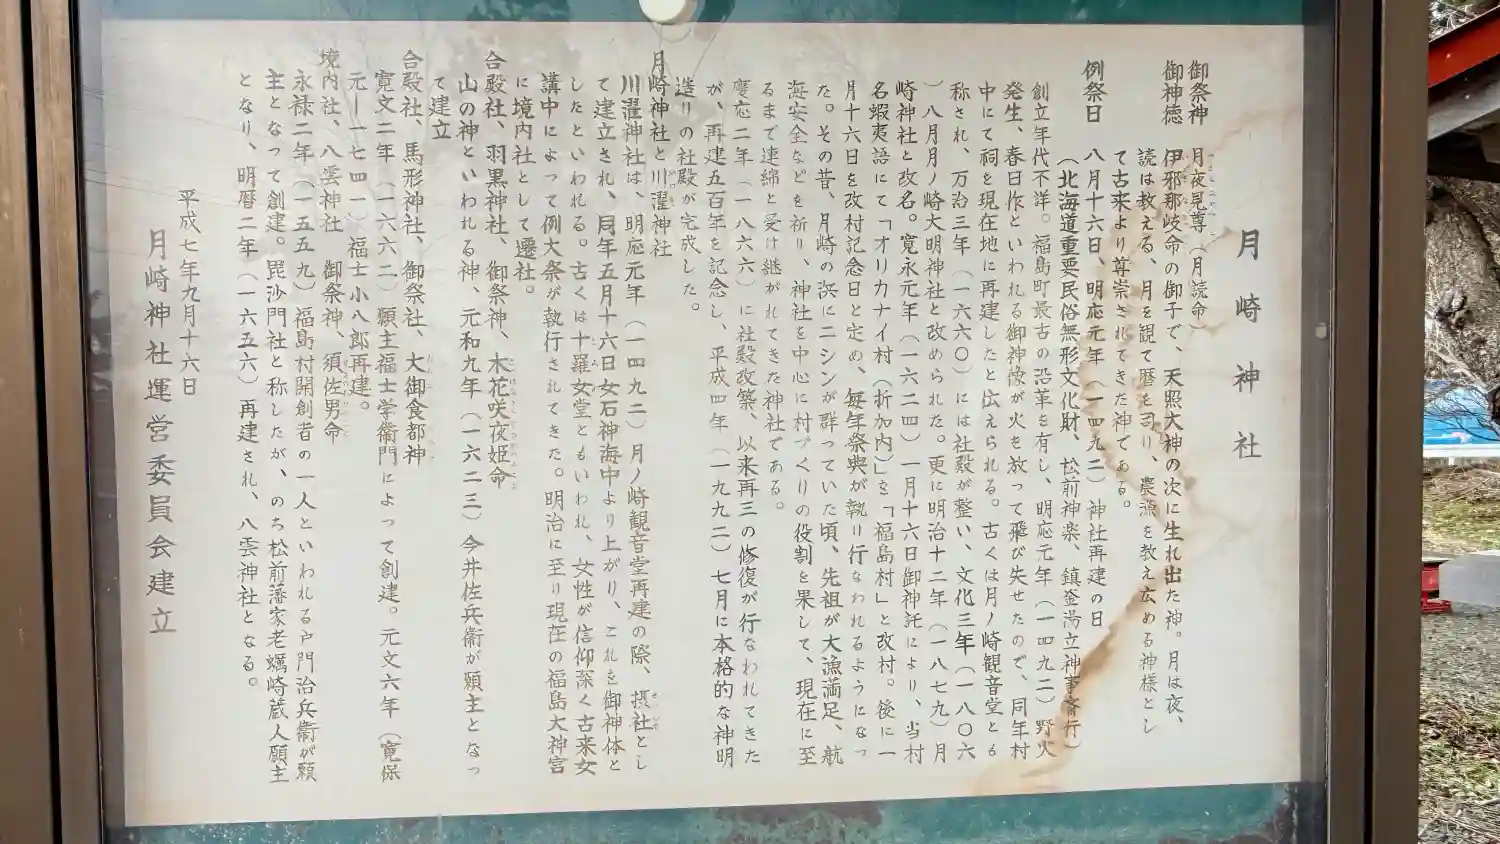 月崎神社
御祭神 月夜見尊（月読命）
御神徳 伊邪那岐命の御子で、天照大神の次に生れ出た神。月は夜、
読は教える、月を観て暦を司り、農漁を教え広める神様とし
て古来より尊崇されてきた神である。
例祭日 八月十六日、明応元年（一四九二）神社再建の日
（北海道重要民俗無形文化財、松前神楽、鎮釜湯立神事斎行）
創立年代不洋。福島町最古の沿革を有し、明応元年（一四九二）野火
発生、春日作といわれる御神像が火を放って飛び失せたので、同年村
中にて祠を現在地に再建したと伝えられる。古くは月ノ崎観音堂とも
称され、万治三年（一六六〇）には社殿が整い、文化三年（一八〇六
）八月月ノ崎大明神社と改められた。更に明治十二年（一八七九）月
崎神社と改名。寛永元年（一六二四）一月十六日御神託により、当村
名蝦夷語にて「オリカナイ村（折加内）」を「福島村」と改村。後に一
月十六日を改村記念日と定め、毎年祭典が執り行なわれるようになっ
た。その昔、月崎の浜にニシンが群っていた頃、先祖が大漁満足、航
海安全などを祈り、神社を中心に村づくりの役割を果して、現在に至
るまで連綿と受け継がれてきた神社である。
慶応二年（一八六六）に社殿改築、以来再三の修復が行なわれてきた
が、再建五百年を記念し、平成四年（一九九二）七月に本格的な神明
造りの社殿が完成した。
月崎神社と川濯神社
川濯神社は、明応元年（一四九二）月ノ崎観音堂再建の際、摂社とし
て建立され、同年五月十六日女石神海中より上がり、これを御神体と
したといわれる。古くは十羅女堂ともいわれ、女性が信仰深く古来女
講中によって例大祭が執行されてきた。明治に至り現在の福島大神宮
に境内社として遷社。
合殿社、羽黒神社、御祭神、木花咲夜姫命
山の神といわれる神、元和九年（一六二三）今井佐兵衛が願主となっ
て建立
合殿社、馬形神社、御祭社、大御食都神
寛文二年（一六六二）願主福士学衛門によって創建。元文六年（寛保
元―一七四一）福士小八郎再建。
境内社、八雲神社 御祭神、須佐男命
永禄二年（一五五九）福島村開創者の一人といわれる戸門治兵衛が願
主となって創建。毘沙門社と称したが、のち松前藩家老蠣崎蔵人願主
となり、明暦二年（一六五六）再建され、八雲神社となる。
平成七年九月十六日
月崎神社運営委員会建立